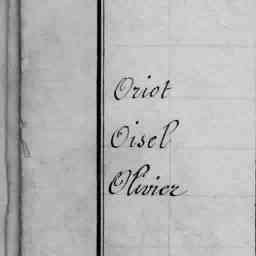 Oriot
Oisel
Olivier